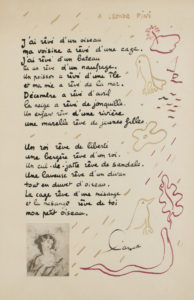 A LEONOR FINI
J'ai rêvé d'un oiseau
ma voisine a rêvé d'une cage.
J'ai rêvé d'un bateau
tu as rêvé d'un naufrage.
Un poisson a rêvé d'une île
et ma vie a rêvé de la mer.
Décembre a rêvé d'avril
la neige a rêvé de jonquille.
Un enfant rêve d'une rivière
une marelle rêve de jeunes filles.
Un roi rêve de liberté
une bergère rêve d'un roi.
Un cul-de-jatte rêve de sandales.
Une laveuse rêve d'un
tout en duvet d'oiseau.
La cage rêve d'une mésange
et la mésange rêve de toi
mon petit oiseau.